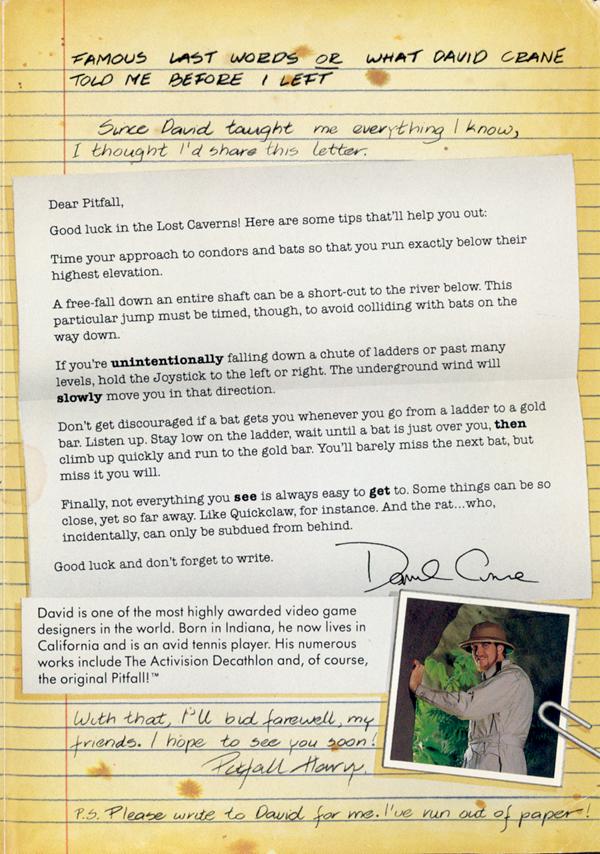 FAMOUS LAST WORDS OR WHAT DAVID CRANE
TOLD ME BEFORE I LEFT
Since David taught me everything I know,
I thought I'd share this letter.
Dear Pitfall,
Good luck in the Lost Caverns! Here are some tips that'll help you out:
Time your approach to condors and bats so that you run exactly below their
highest elevation.
A free-fall down an entire shaft can be a short-cut to the river below. This
particular jump must be timed, though, to avoid colliding with bats on the
way down.
If you're unintentionally falling down a chute of ladders or past many
levels, hold the Joystick to the left or right. The underground wind will
slowly move you in that direction.
Don't get discouraged if a bat gets you whenever you go from a ladder to a gold
bar. Listen up. Stay low on the ladder, wait until a bat is just over you, then
climb up quickly and run to the gold bar. You'll barely miss the next bat, but
miss it you will.
Finally, not everything you see is always easy to get to. Some things can be so
close, yet so far away. Like Quickclaw, for instance. And the rat...who,
incidentally, can only be subdued from behind.
Good luck and don't forget to write.
David Crane
David is one of the most highly awarded video game
designers in the world. Born in Indiana, he now lives in
California and is an avid tennis player. His numerous
works include The Activision Decathlon and, of course,
the original Pitfall!™
With that, I'll bid farewell, my
friends. I hope to see you soon!
Pitfall Harry.
P.S. Please write to David for me. I've run out of paper!